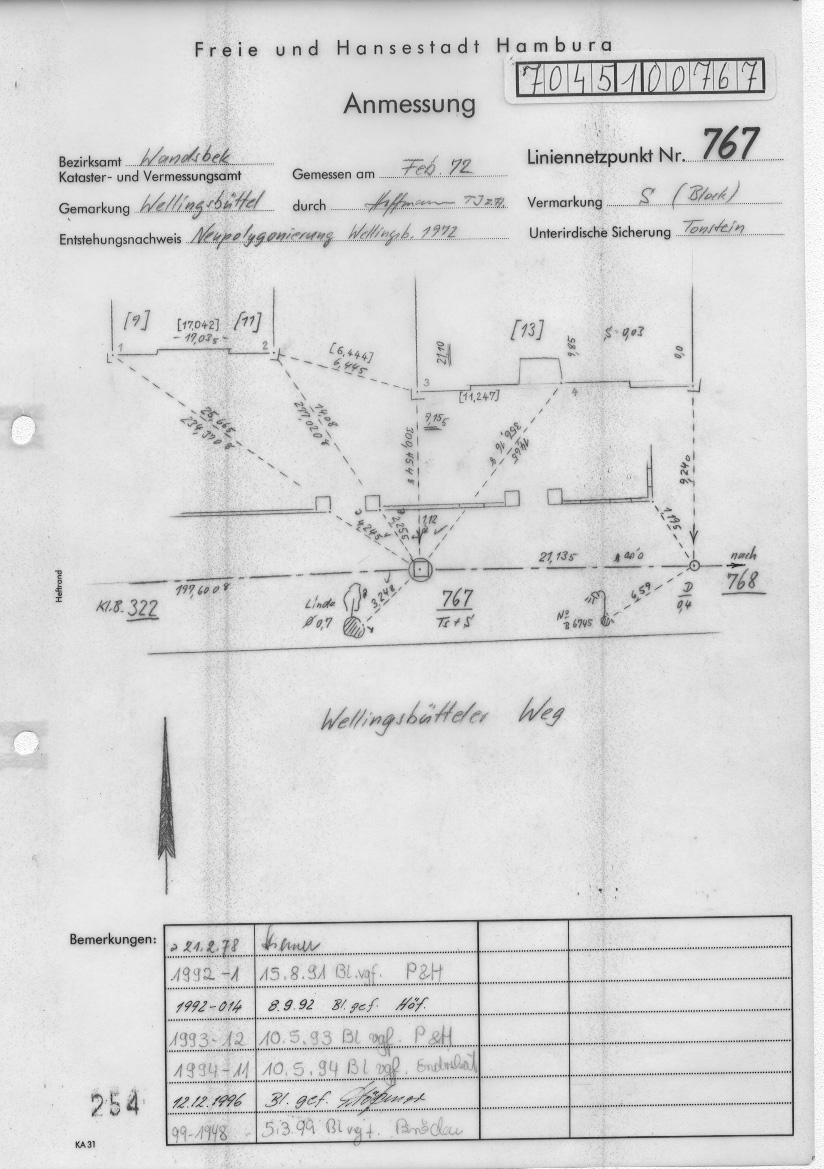 Freie und Hansestadt Hamburg
7045100767
Anmessung
Bezirksamt Wandsbek
Kataster- und Vermessungsamt
Gemessen am Feb. 72
Liniennetzpunkt Nr. 767
Gemarkung Wellingsbüttel
durch Hoffmann
Vermarkung S (Block)
Entstehungsnachweis Neupolygonierung Wellingsb. 1972
Unterirdische Sicherung Tonstein
[9] [17,042] [11]
-17,035-
1 2
[6,444]
6,445
21,10
[13]
9,85
S-0,03
0,0
3
[11,247]
4
25,665
234,3908
14,08
277,0208
9,155
300,4548
14,65
9,240
4,245
2,255
1,12
1,195
21,135
nach
768
197,6008
Kl.8. 322
Linde
Ø 0,7
3,248
767
Ts + S
No
B 6745
4,59
D
0,4
Heftrand
Wellingsbütteler Weg
Bemerkungen:
21.2.78
1992-1 15.8.91 Bl.vgf. P&H
1992-014 8.9.92 Bl. gef. Höf.
1993-12 10.5.93 Bl vgf. P&H
1994-11 10.5.94 Bl vgf.
12.12.1996 Bl. gef.
99-1948 5.3.99 Bl vgf.
254
KA 31